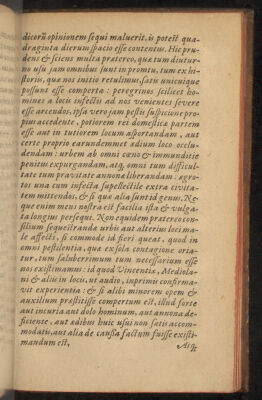 dicorũ opinionem sequi maluerit, is potest qua-
draginta dierum spacio esse contentus. Hic pru-
dens & sciens multa prætereo, quæ tum diutur-
no usu jam omnibus sunt in promtu, tum ex hi-
storiis, quæ nos initio retulimus, satis unicuique
possunt esse comperta: peregrinos scilicet ho-
mines a locis infectis ad nos venientes severe
esse arcendos, ipsa vero jam pestis suspicione pro-
pius accedente, potiorem rei domesticæ partem
esse aut in tutiorem locum asportandam, aut
certe proprio earundemmet ædium loco occlu-
dendam: urbem ab omni cœno & immunditie
penitus expurgandam, atq, omni tum difficul-
tate tum pravitate annonæ liberandam: ægro-
tos una cum infecta supellectile extra civita-
tem mittendos, & si quæ alia sunt id genus. Ne-
que enim meus nostra est facilia ista & vulga-
ta longius persequi. Non equidem prætereo con-
silium sequestrandæ urbis aut alterius loci ma-
le affecti, si commode id fieri queat, quod in
omni pestilentia, quæ ex sola contagione oria-
tur, tum saluberrimum tum necessarium esse
nos existimamus: id quod Vincentiæ, Mediola-
ni & aliis in locis, ut audio, inprimis confirma-
vit experientia: & si alibi minorem opem &
auxilium præstitisse compertum est, illud forte
aut incuria aut dolo hominum, aut annona de-
ficiente, aut ædibus huic usui non satis accom-
modatis, aut alia de causa factum fuisse existi-
mandum est,
Atq,